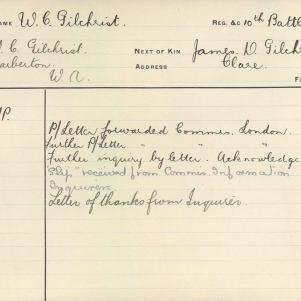 NAME W. C. Gilchrist. REG. &c 10th Battl
C. Gilchrist. NEXT OF KIN James D. Gilch
arberton. ADDRESS Clare.
W.A.
P.
P/Letter forwarded Commis. London.
Further P/Letter " " "
Further inquiry by letter. Acknowledge
Slip" received from Commis. Information
Inquirers
Letter of thanks from Inquirer.